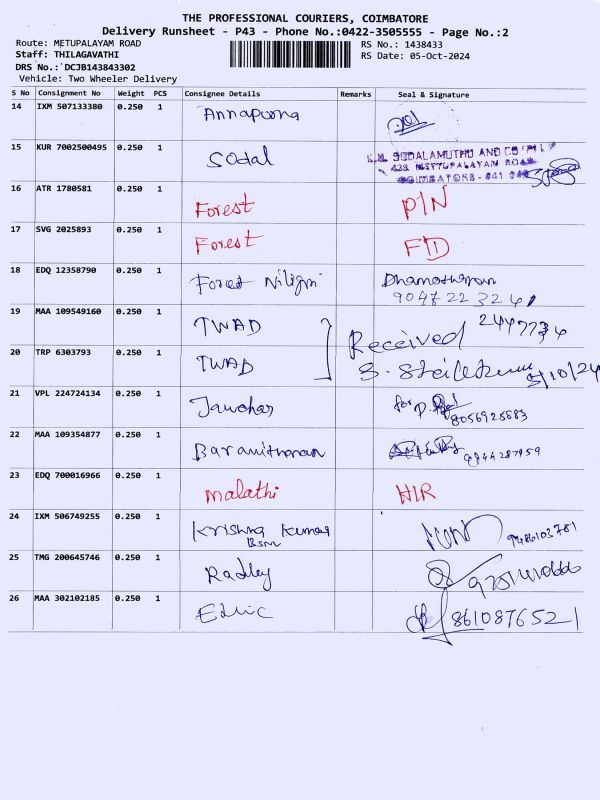 THE PROFESSIONAL COURIERS, COIMBATORE
Delivery Runsheet - P43 - Phone No.:0422-3505555 - Page No.:2
Route: METUPALAYAM ROAD RS No.: 1438433
Staff: THILAGAVATHI RS Date: 05-Oct-2024
DRS No.: DCJB143843302
Vehicle: Two Wheeler Delivery
S No Consignment No Weight PCS Consignee Details Remarks Seal & Signature
14 IXM 507133380 0.250 1 Annapoorna
15 KUR 7002500495 0.250 1 Sodal
SODALAMUTHU AND CO
METTUPALAYAM ROAD
COIMBATORE - 641
16 ATR 1780581 0.250 1 Forest PIN
17 SVG 2025893 0.250 1 Forest FTD
18 EDQ 12358790 0.250 1 Forest Niligri Dhamotharan
9047223241
19 MAA 109549160 0.250 1 TWAD Received 2447734
20 TRP 6303793 0.250 1 TWAD 5/10/24
21 VPL 224724134 0.250 1 Jawahar for
8056928883
22 MAA 109354877 0.250 1 Baranitharan 9844287959
23 EDQ 700016966 0.250 1 Malathi HIR
24 IXM 506749255 0.250 1 Krishna Kumar 9486103781
BSM
25 TMG 200645746 0.250 1 Radley
26 MAA 302102185 0.250 1 8610876521